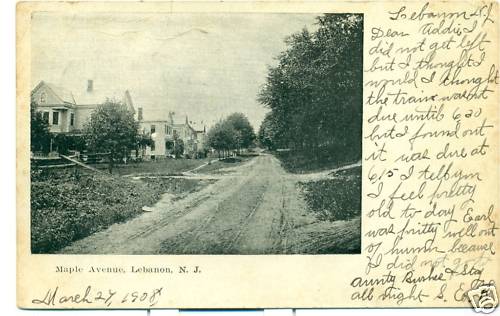 Lebanon N.J.
Dear Addie I
did not get left
but I thought I
would I thought
the train wasnt
due until 620
but I found out
it was due at
615 I tell you
I feel pretty
old to day Earl
was pritty well out
of humor because
I did not go to
Aunty Burke & Stay
all night S. E.
Maple Avenue, Lebanon, N. J.
March 27, 1908